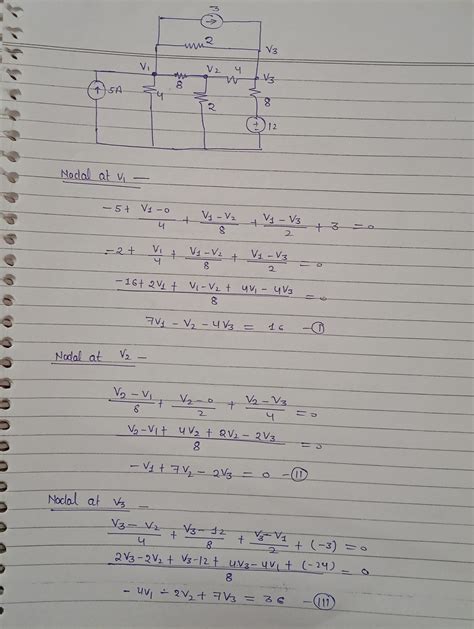 3
2
V3
V1
V2
4
V3
8
5A
4
2
8
12
Nodal at V1 —
-5 + V1-0/4 + V1-V2/8 + V1-V3/2 + 3 = 0
-2 + V1/4 + V1-V2/8 + V1-V3/2 = 0
-16 + 2V1 + V1-V2 + 4V1-4V3/8 = 0
7V1 - V2 - 4V3 = 16 - I
Nodal at V2 —
V2-V1/6 + V2-0/2 + V2-V3/4 = 0
V2-V1 + 4V2 + 2V2-2V3/8 = 0
-V1 + 7V2 - 2V3 = 0 - II
Nodal at V3 —
V3-V2/4 + V3-12/8 + V3-V1/2 + (-3) = 0
2V3-2V2 + V3-12 + 4V3-4V1 + (-24)/8 = 0
-4V1 - 2V2 + 7V3 = 36 - III